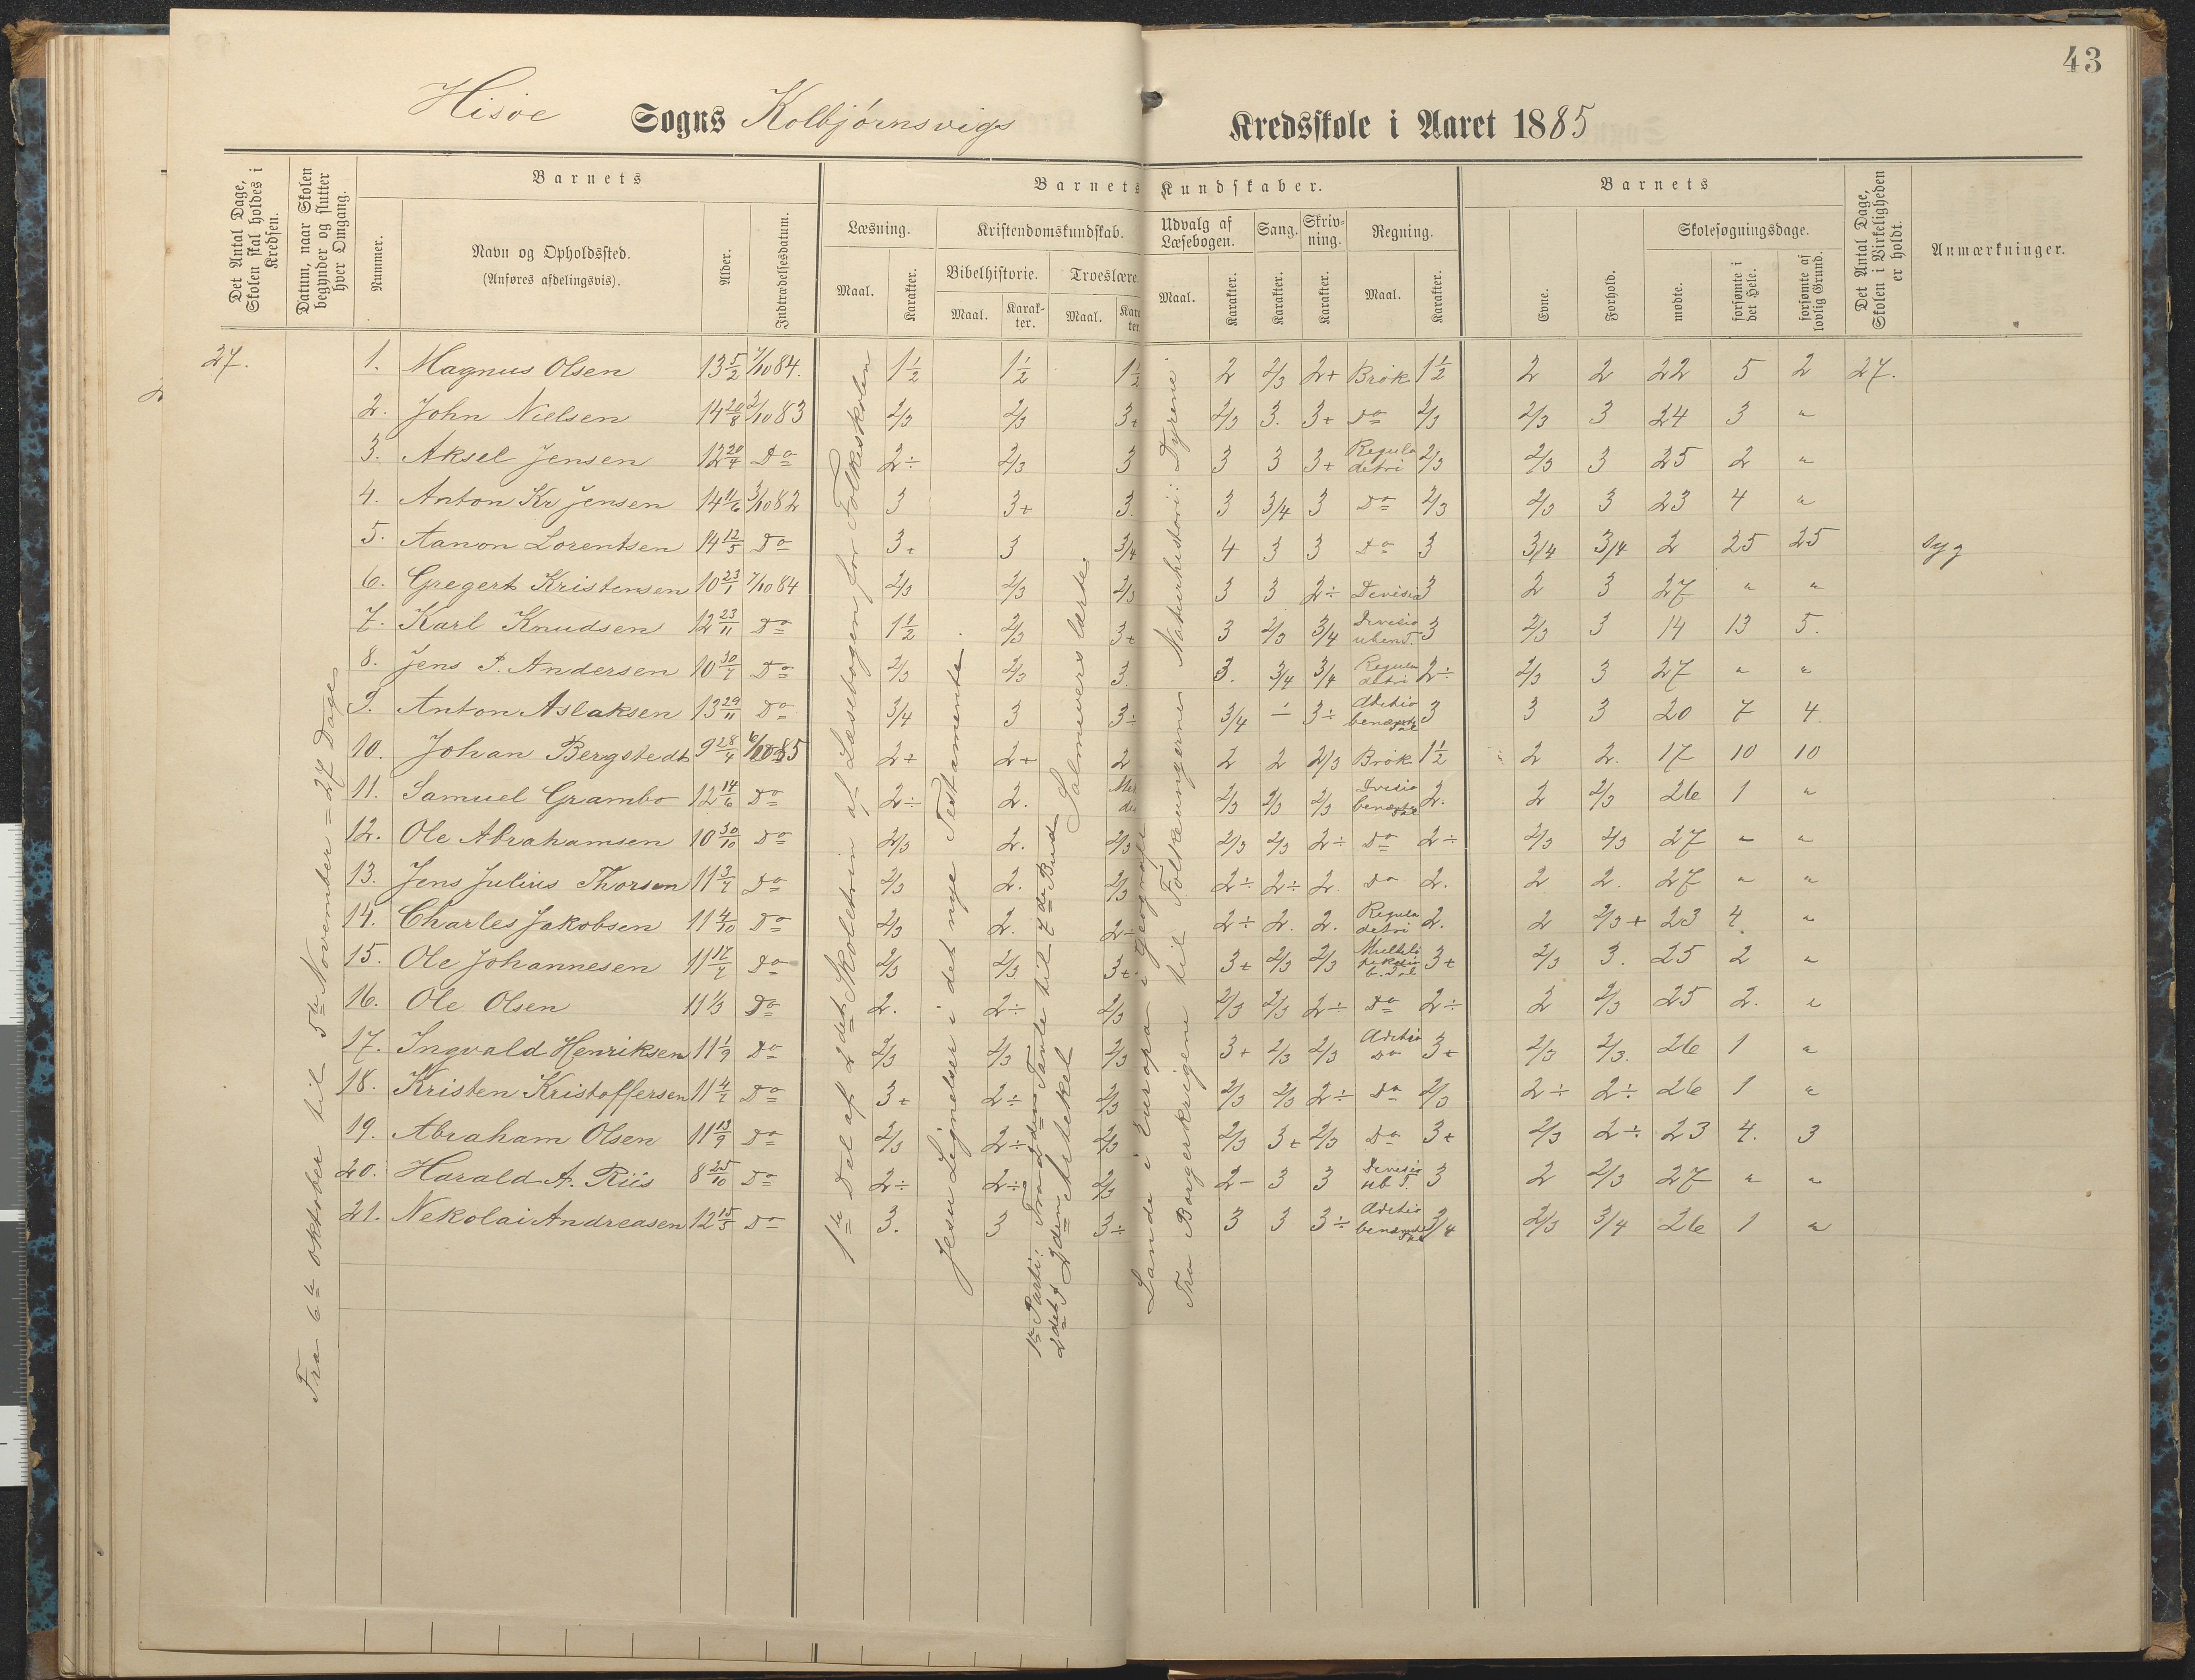 43
Hisøe Sogns Kolbjørnsvigs Kredsskole i Aaret 1885
Det Antal Dage, Skolen skal holdes i Kredsen.
Datum, naar Skolen begynder og slutter hver Omgang.
Barnets
Nummer.
Navn og Opholdssted.
(Anføres afdelingsvis).
Alder.
Indtrædelsesdatum.
Barnets Kundskaber.
Læsning.
Maal.
Karakter.
Kristendomskundskab.
Bibelhistorie.
Maal.
Karakter.
Troeslære.
Maal.
Udvalg af Læsebogen.
Maal.
Karakter.
Sang.
Karakter.
Skrivning.
Karakter.
Regning.
Maal.
Karakter.
Barnets
Evne.
Forhold.
Skolesøgningsdage.
mødte.
forsømte i det Hele.
forsømte af lovlig Grund.
Det Antal Dage, Skolen i Virkeligheden er holdt.
Anmærkninger.
27. 1. Magnus Olsen 13 5/2 7/10 84. 1½ 1½ 1½ 2 2/3 2+ Brøk 1½ 2 2 22 5 2 27.
2. John Nielsen 14 20/8 2/10 83 2/3 2/3 3+ 2/3 3. 3+ Do 2/3 2/3 3 24 3 "
3. Aksel Jensen 12 20/4 Do 2÷ 2/3 3 3 3 3+ Regula detri 2/3 2/3 3 25 2 "
4. Anton Kr Jensen 14 11/6 3/10 82 3 3+ 3. 3 3/4 3 Do 2/3 2/3 3 23 4 "
5. Aanon Lorentsen 14 12/5 Do 3+ 3 3/4 4 3 3 Do 3 3/4 3/4 2 25 25 syg
6. Gregert Kristensen 10 23/1 7/10 84 2/3 2/3 2/3 3 3 2÷ Devisio 3 2 3 27 " "
7. Karl Knudsen 12 23/11 Do 1½ 2/3 3+ 3 2/3 3/4 Devisio uben T. 3 2/3 3 14 13 5.
8. Jens P. Andersen 10 30/7 Do 2/3 2/3 3. 3. 3/4 3/4 Regula detri 2÷ 2/3 3 27 " "
9. Anton Aslaksen 13 29/11 Do 3/4 3 3÷ 3/4 ÷ 3÷ Adetio benævnte Tal 3 3 3 20 7 4.
10. Johan Bergstedt 9 28/4 6/10 85 2+ 2+ 2 2 2 2/3 Brøk 1½ 2 2. 17 10 10
11. Samuel Grambo 12 14/6 Do 2÷ 2. 2/3 2/3 2/3 Dvisio benævnte Tal 2. 2 2/3 26 1 "
12. Ole Abrahamsen 10 30/10 Do 2/3 2. 2/3 2/3 2/3 2÷ Do 2÷ 2/3 2/3 27 " "
13. Jens Julius Thorsen 11 3/7 Do 2/3 2. 2/3 2÷ 2÷ 2. Do 2. 2 2. 27 " "
14. Charles Jakobsen 11 4/10 Do 2/3 2. 2÷ 2÷ 2. 2. Regula detri 2. 2 2/3+ 23 4. "
15. Ole Johannesen 11 17/7 Do 2/3 2/3 3+ 3+ 2/3 2/3 3+ 2/3 3. 25 2 "
16. Ole Olsen 11 1/3 Do 2. 2÷ 2/3 2/3 2/3 2÷ Do 2÷ 2 2/3 25 2. "
17. Ingvald Henriksen 11 1/9 Do 2/3 2/3 2/3 3+ 2/3 2/3 Adetio Do 3+ 2/3 2/3. 26 1 "
18. Kristen Kristoffersen 11 4/7 Do 3+ 2÷ 2/3 2/3 2/3 2÷ Do 2/3 2÷ 2÷ 26 1 "
19. Abraham Olsen 11 13/9 Do 2/3 2÷ 2/3 2/3 3+ 2/3 Do 3+ 2/3 2÷ 23 4. 3
20. Harald A. Riis 8 25/10 Do 2÷ 2÷ 2/3 2- 3 3 Devisio ub T. 3 2 2/3 27 " "
21. Nekolai Andreasen 12 15/5 Do 3. 3 3÷ 3 3 3÷ Adetio benævnte Tal 3/4 2/3 3/4 26 1 "
Fra 6te oktober til 5te November = 27 Dage
1te Del af 2det Skoletrin af Læsebogen for Folkeskolen
Jesu Lignelser i det nye Testamente
1te Parti: Fra den Tante til 7de Bud
2det Do 2den Artekel Salmevers lærte.
Lande i Europa i Geografi
Fra Borgerkrigene til Folkeungerne. Naturhistori: Dyrene.